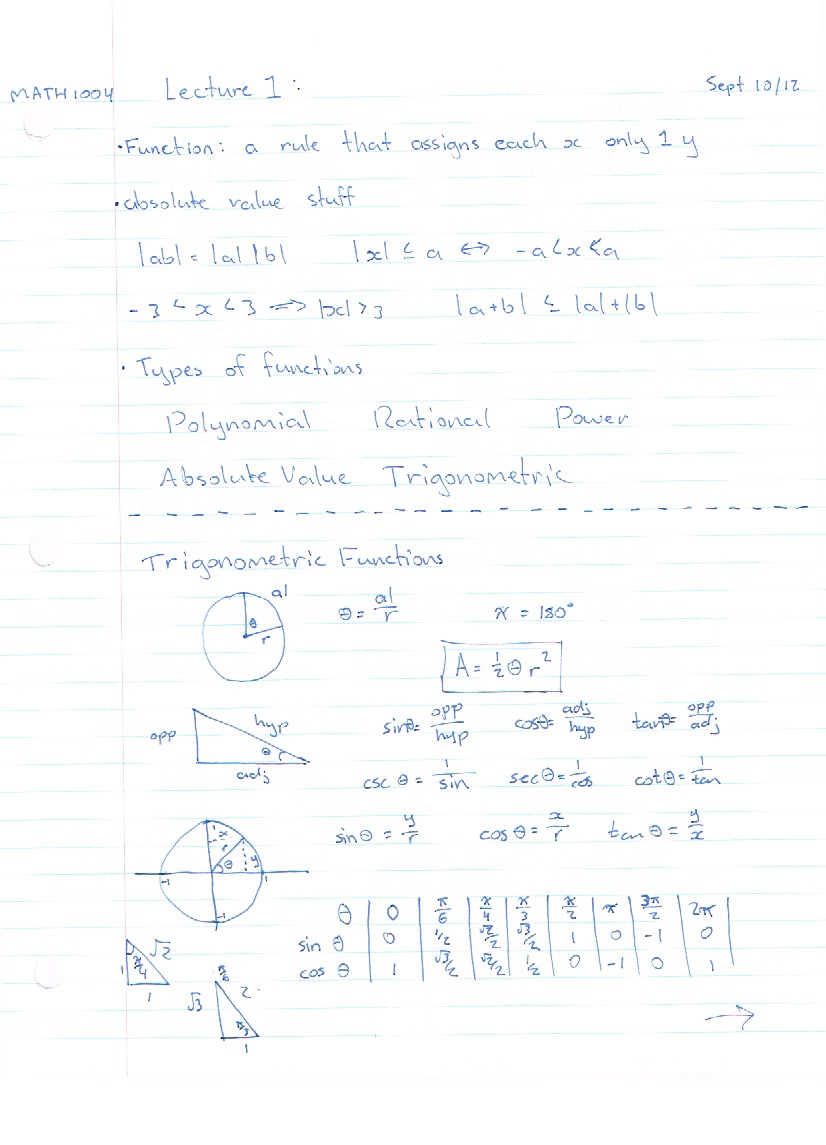 MATH1004 Lecture 1: Sept 10/12
• Function: a rule that assigns each x only 1 y
• absolute value stuff
|ab| = |a||b| |x| ≤ a ⟺ -a<x<a
-3 < x < 3 ⟹ |x| > 3 |a+b| ≤ |a|+|b|
• Types of functions
Polynomial Rational Power
Absolute Value Trigonometric
Trigonometric Functions
al
θ
r
θ = al/r π = 180°
A = ½θr²
opp hyp θ adj
sinθ = opp/hyp cosθ = adj/hyp tanθ = opp/adj
csc θ = 1/sin sec θ = 1/cos cot θ = 1/tan
x r θ y
-1 1
-1
sin θ = y/r cos θ = x/r tan θ = y/x
θ | 0 | π/6 | π/4 | π/3 | π/2 | π | 3π/2 | 2π
sin θ | 0 | 1/2 | √2/2 | √3/2 | 1 | 0 | -1 | 0
cos θ | 1 | √3/2 | √2/2 | 1/2 | 0 | -1 | 0 | 1
1 π/4 √2
1
π/6
√3 2
π/3
1
→